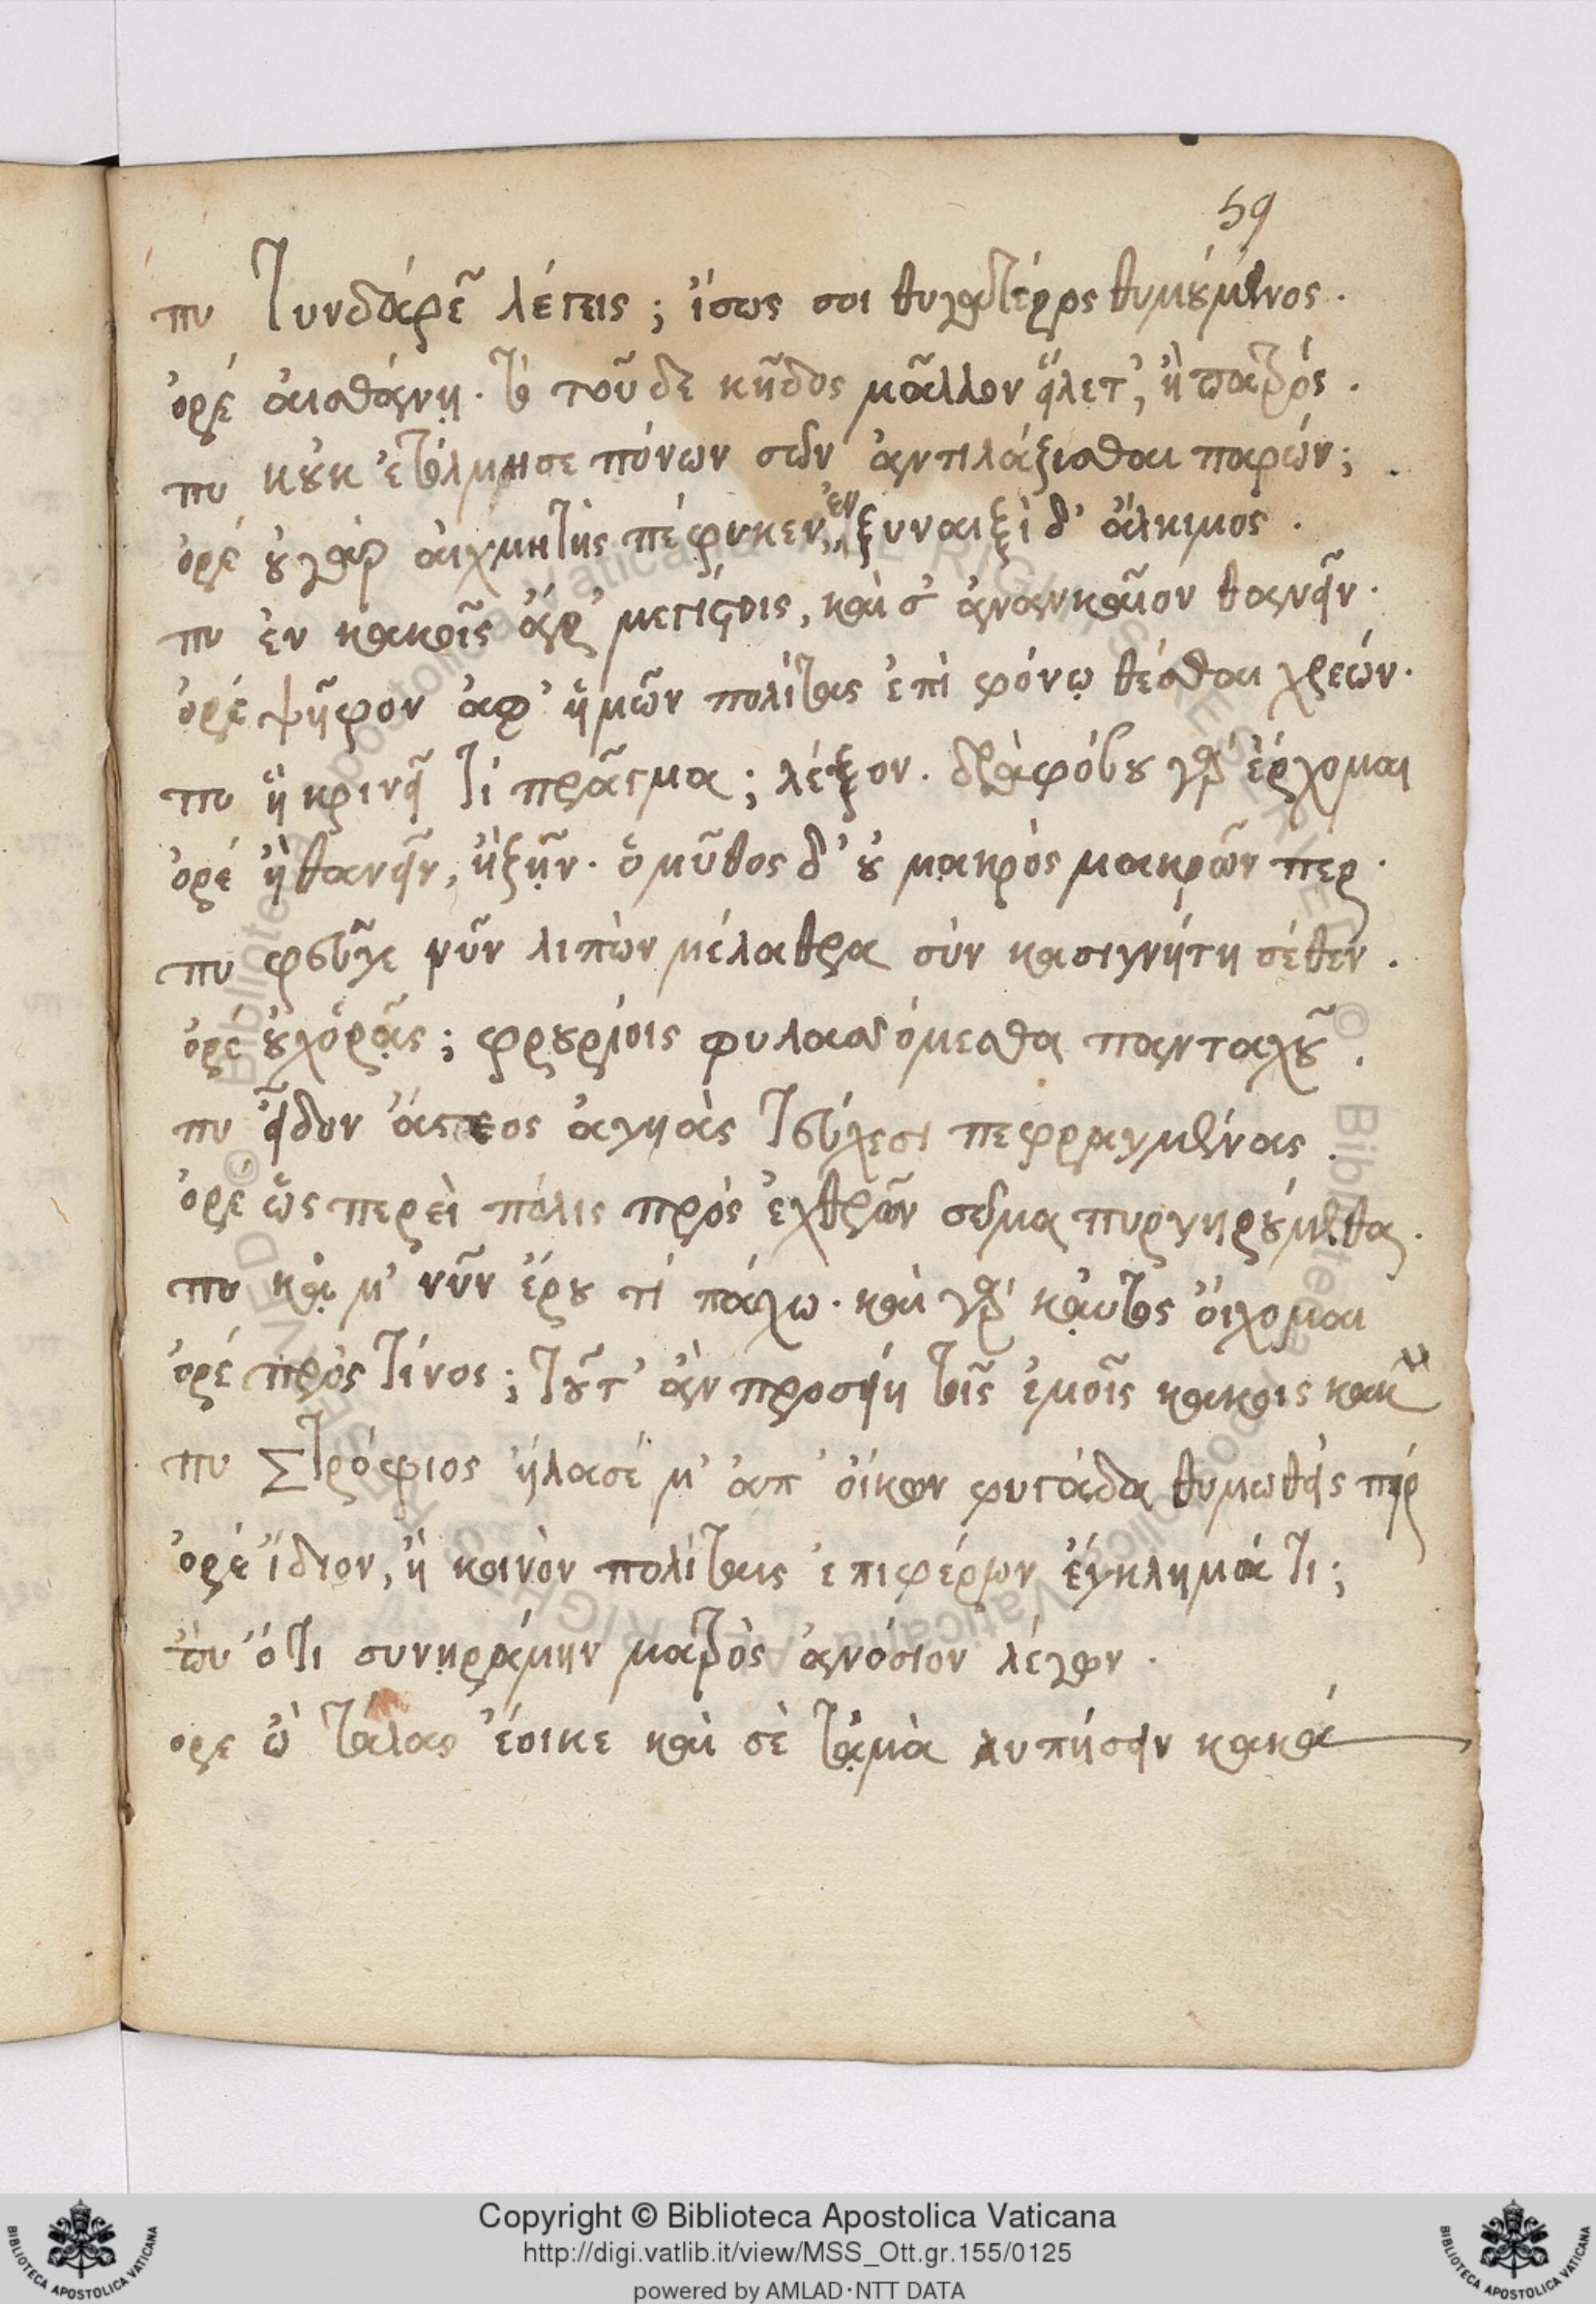 59
πυ Τυνδάρεω λέγεις; ἴσως σοι θυγατέρος θυμούμενος.
ὀρέ ἀισθάνη. τὸ τοῦδε κῆδος μᾶλλον εἵλετ', ἢ πατρός.
πυ κοὐκ ἐτόλμησε πόνων σῶν ἀντιλάξισθαι παρών;
ὀρέ οὐ γὰρ ἀιχμητὴς πέφυκεν, ἐν γυναιξὶ δ' ἄλκιμος.
πυ ἐν κακοῖς ἄρ' μεγίστοις, καὶ σ' ἀναγκαῖον θανεῖν.
ὀρέ ψῆφον ἀμφ' ἡμῶν πολίτας ἐπὶ φόνῳ θέσθαι χρεών.
πυ ἣ κρινεῖ τί πρᾶγμα; λέξον. διὰ φόβου γὰρ ἔρχομαι
ὀρέ ἢ θανεῖν, ἢ ζῆν. ὁ μῦθος δ' οὐ μακρὸς μακρῶν περ.
πυ φεῦγε νῦν λιπὼν μέλαθρα σὺν κασιγνήτη σέθεν.
ὀρέ οὐχ ὁρᾷς; φρουρίοις φυλασσόμεσθα πανταχοῦ.
πυ εἶδον ἄστεος ἀγυιὰς τεύχεσι πεφραγμένας.
ὀρέ ὥσπερεὶ πόλις πρὸς ἐχθρῶν σῶμα πυργηρούμεθα.
πυ κἀμ' νῦν ἔρου τί πάσχω. καὶ γὰρ καὐτὸς οἴχομαι
ὀρέ πρὸς τίνος; τοῦτ' ἂν προσείη τοῖς ἐμοῖς κακοις κακὸν
πυ Στρόφιος ἤλασέ μ' ἀπ' οἴκων φυγάδα θυμωθεὶς πατήρ
ὀρέ ἴδιον, ἢ κοινὸν πολίταις ἐπιφέρων ἔγκλημά τι;
πυ ὅτι συνηράμην ματρὸς ἀνόσιον λέγων.
ορε ὦ τάλας ἔοικε καὶ σὲ τἀμὰ λυπήσειν κακά
Copyright © Biblioteca Apostolica Vaticana
http://digi.vatlib.it/view/MSS_Ott.gr.155/0125
powered by AMLAD·NTT DATA